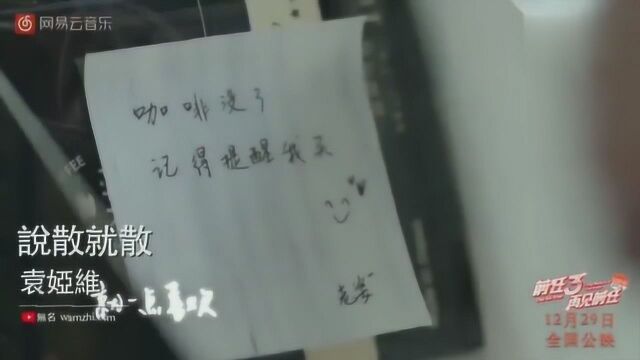 网易云音乐
咖啡没了
记得提醒我买
說散就散
袁婭維
無名 wamzhi.com
前任3
再见前任
12月29日
全国公映